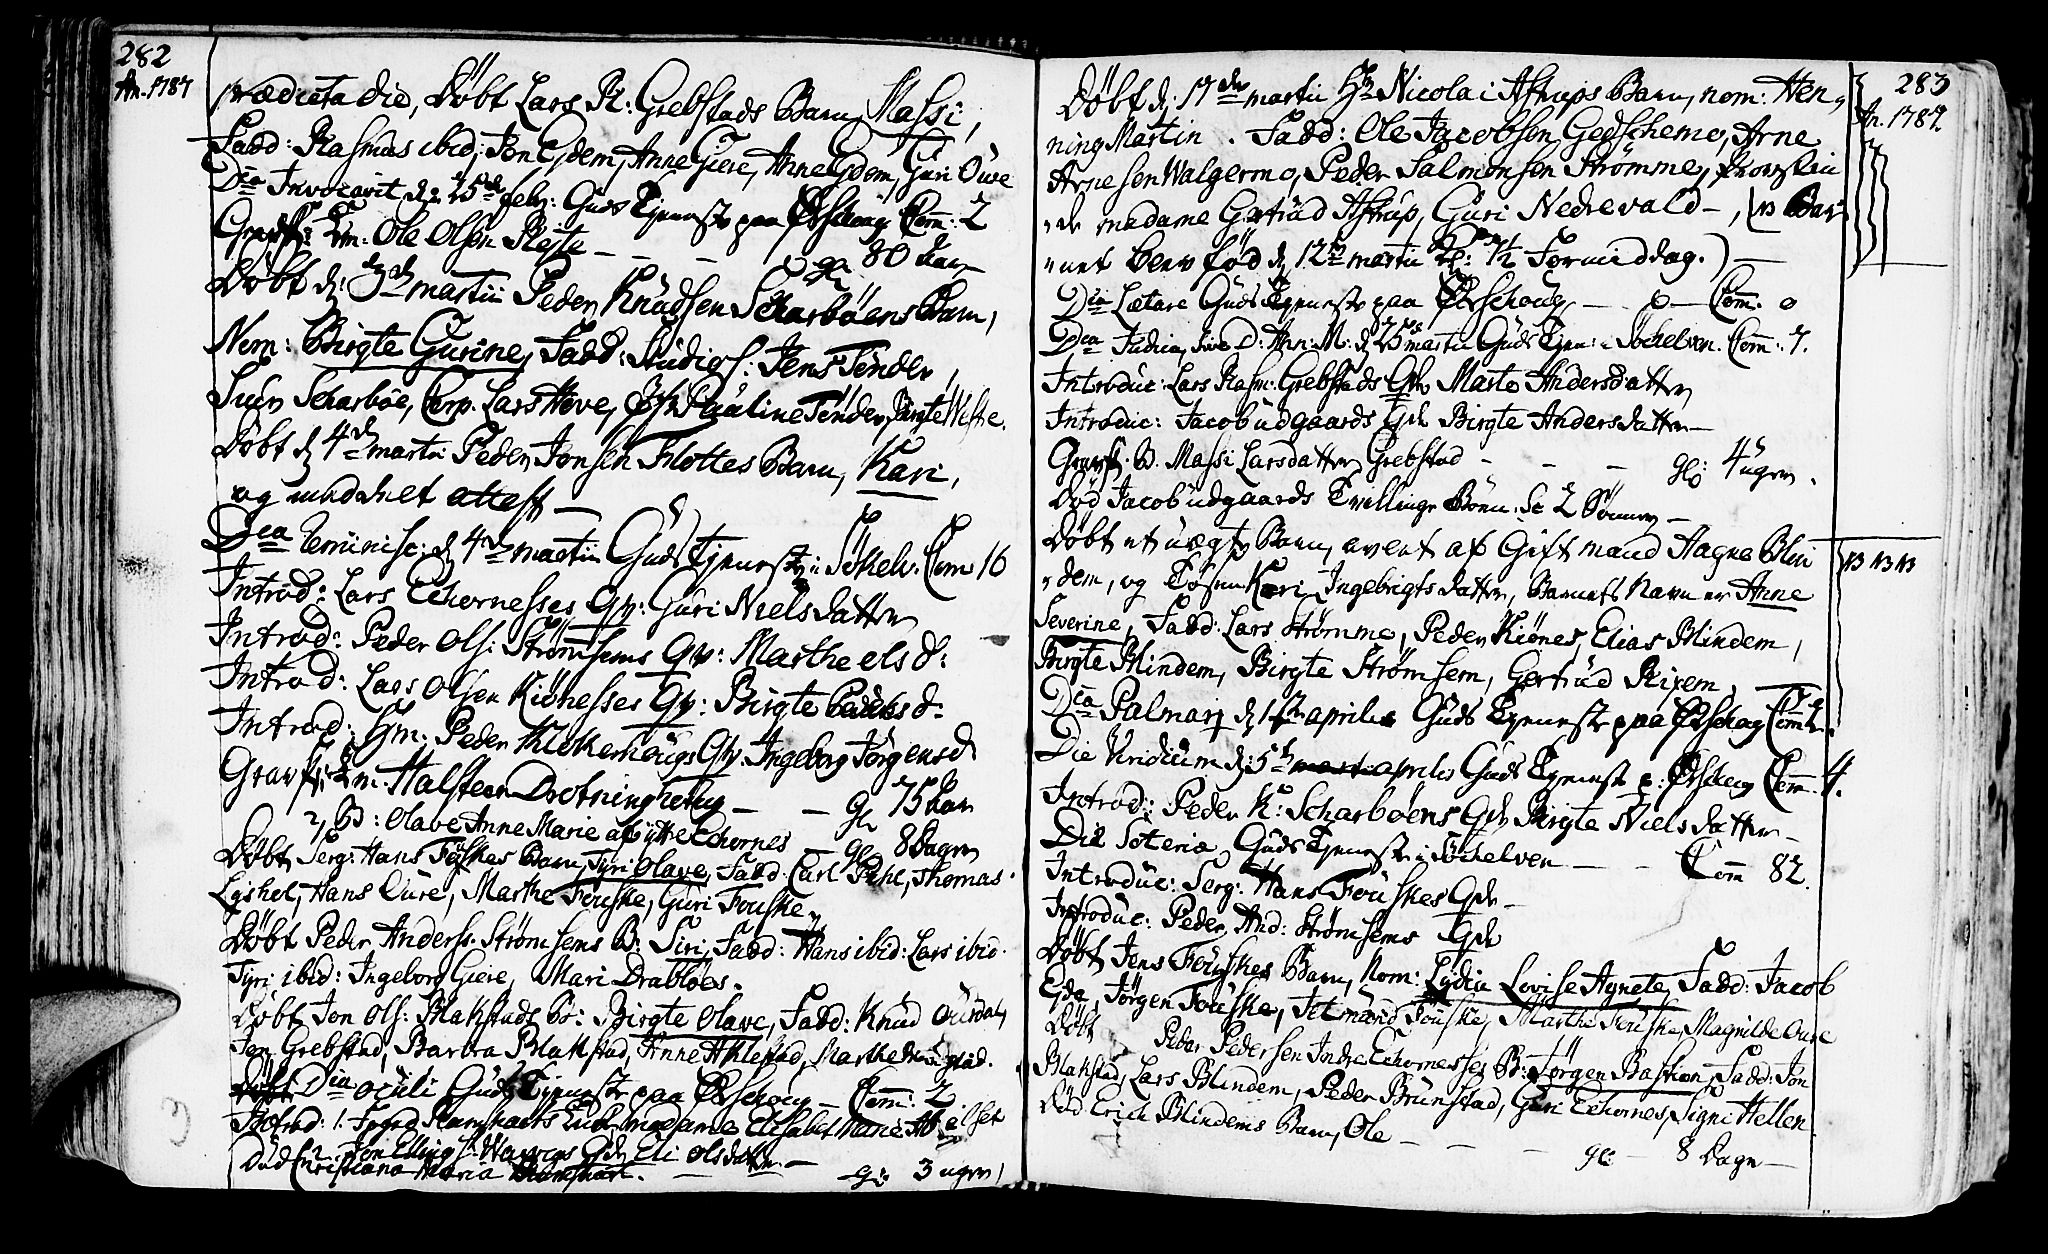 282
An. 1787
prædicta die, Döbt Lars R: Grebstads Barn, Massi,
Fadd: Rasmus ibid; Jon Eydem, Anne Giere, Anne Eydem, Guri Oure
Dca Invocavit d: 25de febr: Guds Tjeneste paa Ørschoug Com: 2
Gravf: Em: Ole Olsen Rejte - - - gl 80 Aar
Döbt d: 3de martii Peder Knudsen Scharböens Barn,
Nom: Birgte Gurine, Fadd: Studios: Jens Tönder,
Siur Scharböe, Corp. Lars Hove, Jfr Pauline Tönder, Birgte Wiske.
Döbt d 4de martii Peder Jonsen Flottes Barn, Kari,
og meddelt attest —
Dca Reminisc: d 4de martii Guds Tjeneste i Sökelv. Com 16
Introd: Lars Echornesses Qv: Guri Niels datter
Introd: Peder Ols: Strömsems Qv: Marthe els d:
Introd: Lars Olsen Kiönesses Qv: Birgte Peders d:
Introd: Hm. Peder Klokkerhougs Qv: Ingeborg Jörgensd
Gravf: Em: Halsteen Drotninghoug — — gl 75 Aar
2, B: Olave Anne Marie af ytre Echornes — gl 8 Dager
Döbt Serg: Hans Fouskes Barn, Tyri Olave, Fadd: Carl Pehl, Thomas
Lyshol, Hans Oure, Marthe Fouske, Guri Fouske
Döbt Peder Anderss. Strömsems B: Siri, Fadd: Hans ibid: Lars ibid.
Tyri ibid: Ingeborg Giere, Mari Drabløes.
Döbt Jon Ols: Blakstads B: Birgte Olave, Fadd: Knud Ouredal,
Jon Grebstad, Barbra Blakstad, Anne Ahlestad, Marthe
Dca Oculi Guds Tjeneste paa Ørschoug — Com: 2
Introd: 1. madame Elisabet Marie
2. Jon Ellings: Qv: Eli Olsdatter —
Död Christiana Maria — gl: 3 uger,
283
An. 1787.
Döbt d: 17de martii Hr Nicolai Astrups Barn, nom: Hen-
ning Martin. Fadd: Ole Jacobsen Gedschemo, Arne
Arnesen Walgermo, Peder Salmonsen Strömme, Provstin
de madame Gertrud Astrup, Guri Nedrevald —, (NB Bar
net blev föd d 12te martii Kl: ½ Formiddag.) —
Dca Lætare Guds Tjeneste paa Ørschoug — o — Com: o
Dca Judica, sive D: Ann: M: d 25de martii Guds Tjen: i Söchelven. Com: 7.
Introduc: Lars Rasm: Grebstads Qv Marte Andersdatter
Introduc: Jacob Udgaards Qv Birgte Andersdatter —
Gravf. B. Massi Larsdatter Grebstad - - - gl: 4 uger.
Död Jacob Udgaards Tvillinge Börn: Sc 2 Sönner —
Döbt et uægte Barn, avlet af Gift mand Aagne Blin
dem, og Tösen Kari Ingebrigts datter, Barnets Navn er Anne
NB NB NB
Severine, Fadd: Lars Strømme, Peder Kiönes, Elias Blindem,
Birgte Blindem, Birgte Strømsem, Gertrud Riksem.
Dca Palmar d 1te aprilis Guds Tjeneste paa Ørschoug Com:
Die Viridium d: 5te aprilis Guds Tjenest p: Ørschoug Com: 4.
Introd: Peder K: Scharböens Qv Birgte Nielsdatter —
Die Soteriæ Guds Tjeneste i Söchelven — — Com 82.
Introduc: Serg: Hans Fouskes Qv —
Introduc: Peder And: Strömsems Qv
Döbt Jens Fouskes Barn, Nom: Lydia Lovise Agnete, Fadd: Jacob
Eyde, Jörgen Fouske, Jetmund Fouske, Marthe Fouske, Magnilde Oure
Döbt Peder Pedersen Indre Echornesses B: Jörgen Bastian, Fadd: Jon
Blakstad, Lars Blindem, Peder Brunstad, Guri Echornes, Signi Hellen
Död Erich Blindems Barn, Ole — — — gl: — 8 Dage —